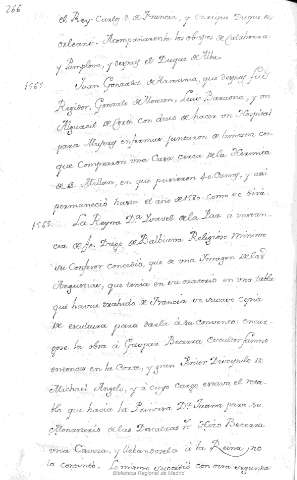 266
el Rey Carlos 9. de Francia, y Enrique Duque de
orleans. Acompañaronla los obispos de Calahorra
y Pamplona, y despues el Duque de Alba.
1565. Juan Gonzalez de Armunia, que despues fue
Regidor, Gonzalo de Monzon, Luis Barahona, y un
Alguacil de Corte con deseo de hacer un Hospital
para Mugeres enfermas juntaron de limosna, con
que Compraron una Casa cerca de la Hermita
de S. Millan, en que pusieron 40 Camas, y asi
permaneció hasta el año de 1580. como se dirá.
1565. La Reyna D.ª Ysavel de la Paz a instan
cia de Fr. Diego de Balbuena Religioso Minimo
su Confesor concedió, que de una Ymagen de las
Angustias, que tenia en su oratorio en una tabla
que havia trahido de Francia se sacase copia
de escultura para darla à su convento: encar
gose la obra à Gaspar Becerra Escultor famoso
entonces en la Corte, y gran Discipulo de
Michael Angelo, y à cuyo cargo estava el reta
blo que hacia la Princesa D.ª Juana para su
Monasterio de las Descalzas R.s Hizo Becerra
una Caveza, y llebandola à la Reina, no
la contentó. Lo mismo sucedió con otra segunda
Biblioteca Regional de Madrid